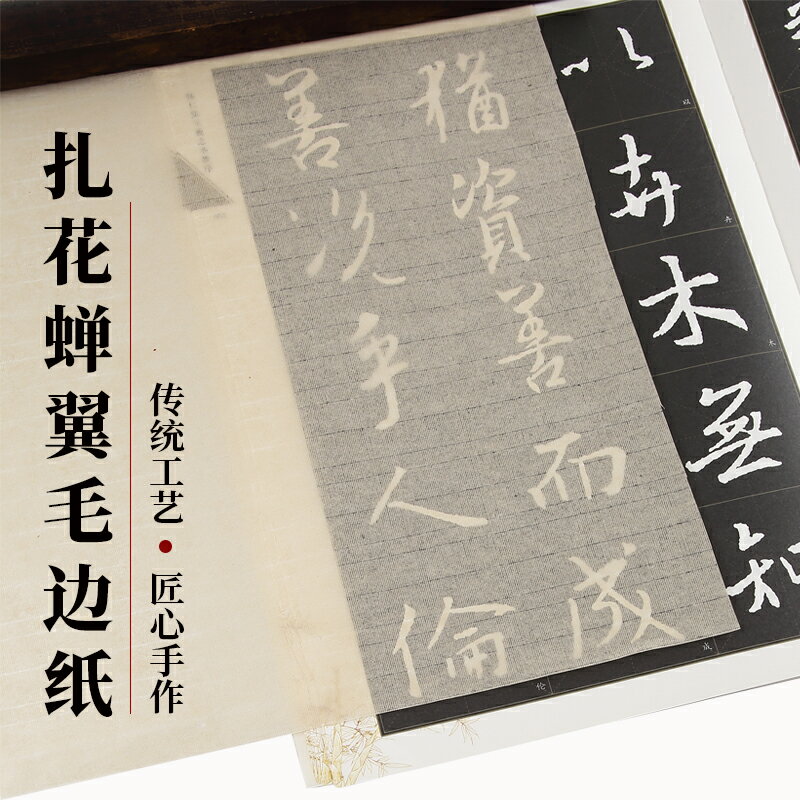 扎花蝉翼毛边纸
传统工艺•匠心手作
以卉木無知
猶資善而成
善况乎人倫
以
卉
木
成
伦